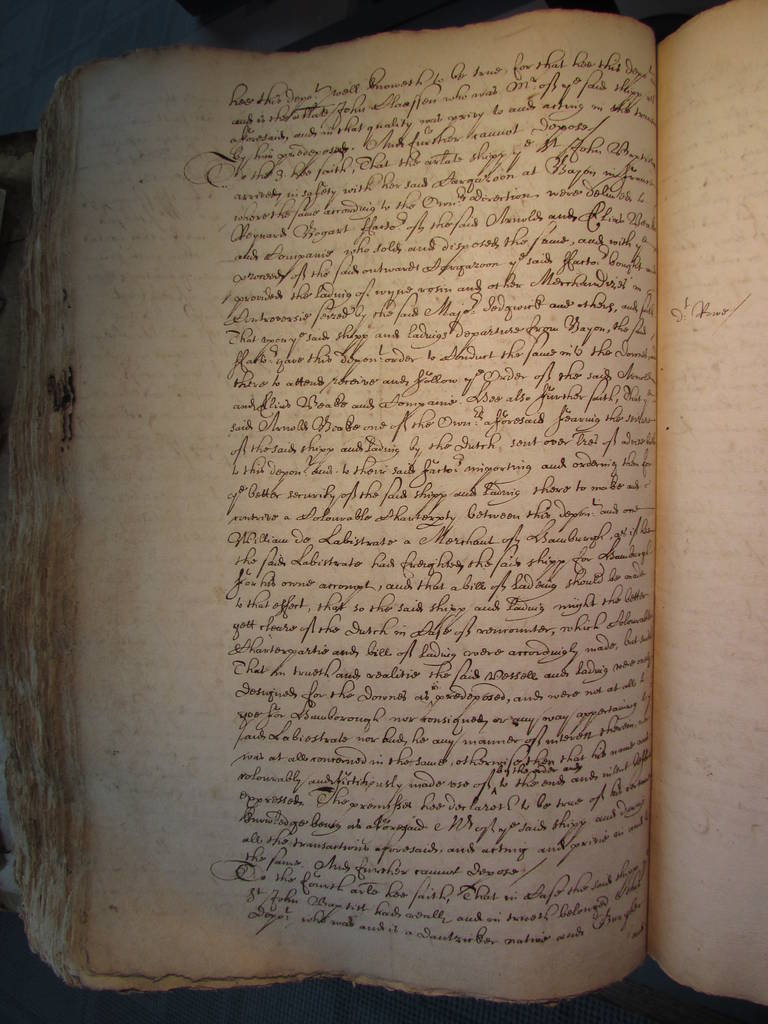 hee this depo:t well knoweth to be true, for that hee this depo:t
and is the John Claessen who was M:r of ye said shipp
aforesaid, and in that quality was privy to and acting in the
by him predeposed. And further cannot depose/
To the 3. hee saith, That the arlate shipp ye St John Baptist
arrived in safety with her said Cargazoon at Bayon in
where the same according to the Own:rs direction, were delivered to
Reynard Bogart Facto:r of the said Arnold and Elias Beake
and Companie who sold and disposed the same, and with ye
proceed of the said outwards Cargazoon ye said Facto:r bought and
provided the lading of wyne, rosin and other Merchandizes in
Controversie seized by the said Majo:r Sedgwick and others, and
That upon ye said shipp and ladings departure from Bayon, the said
Facto:r gave this depon:t order to Conduct the same into the Downes,
there to attend receive and follow ye Order of the said Arnold
and Elias Beake and Companie. Hee also further saith, That ye
said Arnold Beake one of the Own:rs aforesaid fearing the
of the said shipp and lading by the Dutch sent over
to this depon:t and to their said Facto:r importing and ordering them for
ye better security of the said shipp and lading there to make and
contrive a Colourable Charterpty betweene this depon:t and one
William de Labistrate a Merchant of Hamburgh, as if
the said Labistrate had freighted the said shipp for Hamburgh
for his owne accompt, and that a bill of lading should be made
to that effect, that so the said shipp and lading might the better
gett cleare of the Dutch in Case of rencounter, which Colourable
Charterpartie and bill of lading were accordingly made, but
That in trueth and realitie the said vessell and lading were
designed for the Downes as is predeposed, and were not at all to
goe for Hamborough nor consigned or any way appertaining to
said Labistrate nor had he any manner of interest therein, nor
was at all concerned in the same, otherwise then that his name
colourably and fictitiously made use of by the order and to the ends and intent before
expressed. The premisses hee declareth to be true of his certaine
knowledge being as aforesaid M:r of ye said shipp and
all the transactions aforesaid, and acting and privie in and to
the same. And further cannot depose/
To the fourth arle hee saith, That in Case the said shipp
St John Baptist had really and in trueth belonged
Depo:t who was and is a Dantzicker native and Burgher
D:r Rowe/